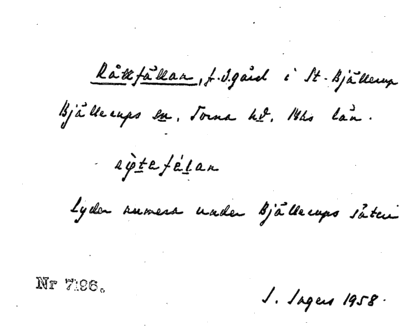 Råttfällan, f.d. gård i St. Bjällerup
Bjällerups sn. Torna hd. Mhs län.
Lyder numera under Bjällerups säteri
Nr 7196.
I. Ingers 1958.